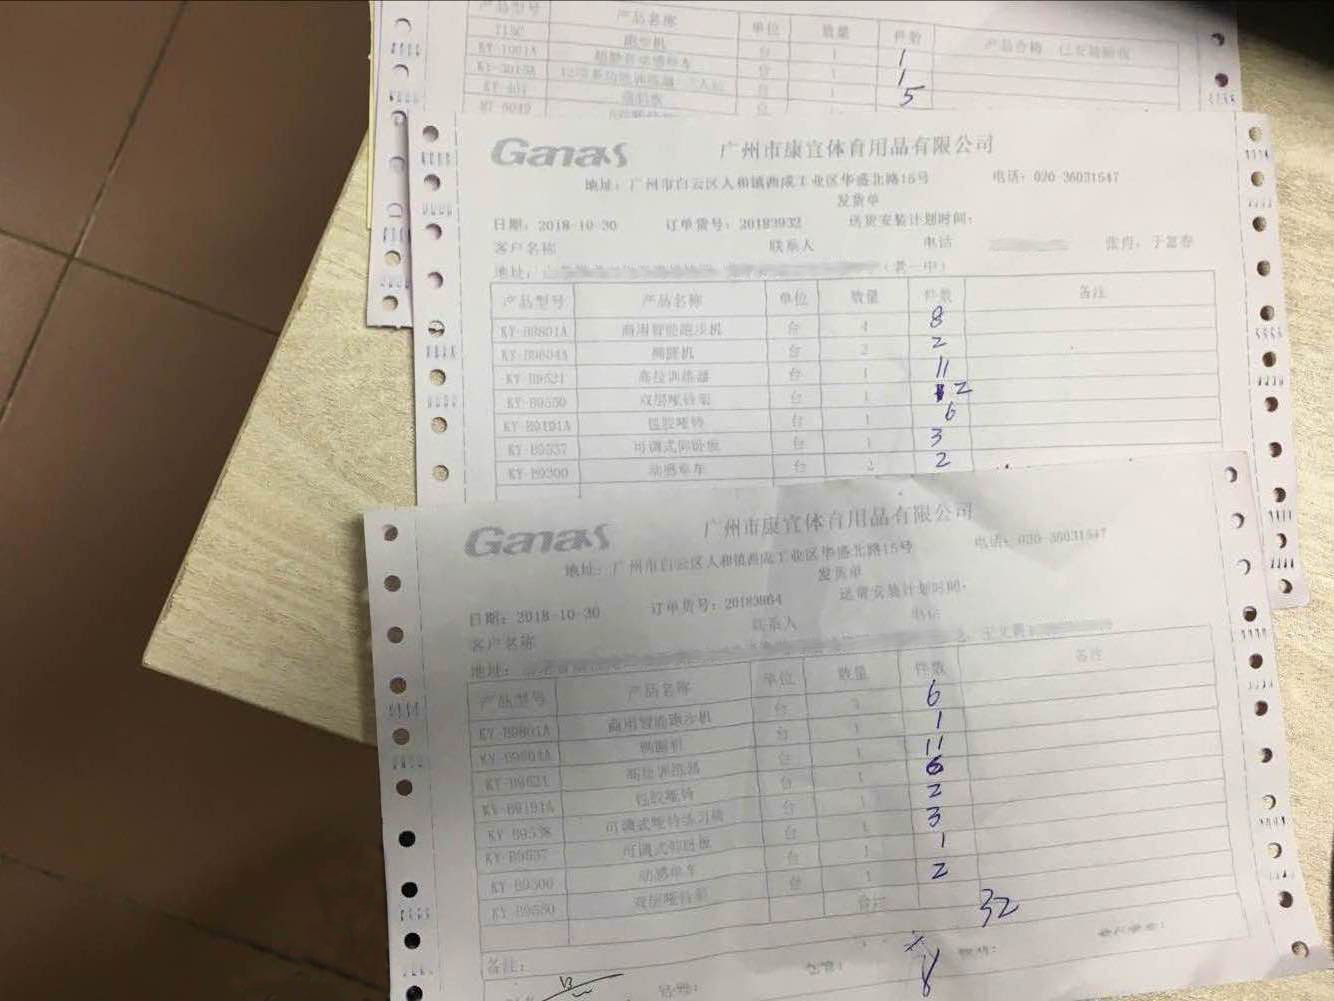 产品型号 产品名称 单位 数量 件数 产品合格 已安装验收
跑步机
KY-1901A 台 1 1
KY-3015A 台 1 1
KY-401 台 1 5
Ganas 广州市康宜体育用品有限公司
地址：广州市白云区人和镇西成工业区华盛北路15号 电话：020-36031547
发货单
日期：2018-10-30 订单货号：20183932 送货安装计划时间：
客户名称 联系人 电话
地址： （县一中）
产品型号 产品名称 单位 数量 件数 备注
KY-B9801A 商用智能跑步机 台 4 8
KY-B9604A 椭圆机 台 2 2
KY-B9521 高拉训练器 台 1 11
KY-B9550 双层哑铃架 台 1 2
KY-B9191A 包胶哑铃 台 1 6
KY-B9537 可调式仰卧板 台 1 3
KY-B9300 动感单车 台 2 2
Ganas 广州市康宜体育用品有限公司
地址：广州市白云区人和镇西成工业区华盛北路15号 电话：020-36031547
发货单
日期：2018-10-30 订单货号：20183864 送货安装计划时间：
客户名称 联系人 电话
地址：
产品型号 产品名称 单位 数量 件数 备注
KY-B9801A 商用智能跑步机 台 3 6
KY-B9604A 椭圆机 台 1 1
KY-B9521 高拉训练器 台 1 11
KY-B9191A 包胶哑铃 台 1 6
KY-B9538 可调式哑铃练习椅 台 1 2
KY-B9537 可调式仰卧板 台 1 3
KY-B9300 动感单车 台 1 1
KY-B9550 双层哑铃架 台 1 2
合计 32
备注：
仓管： 8